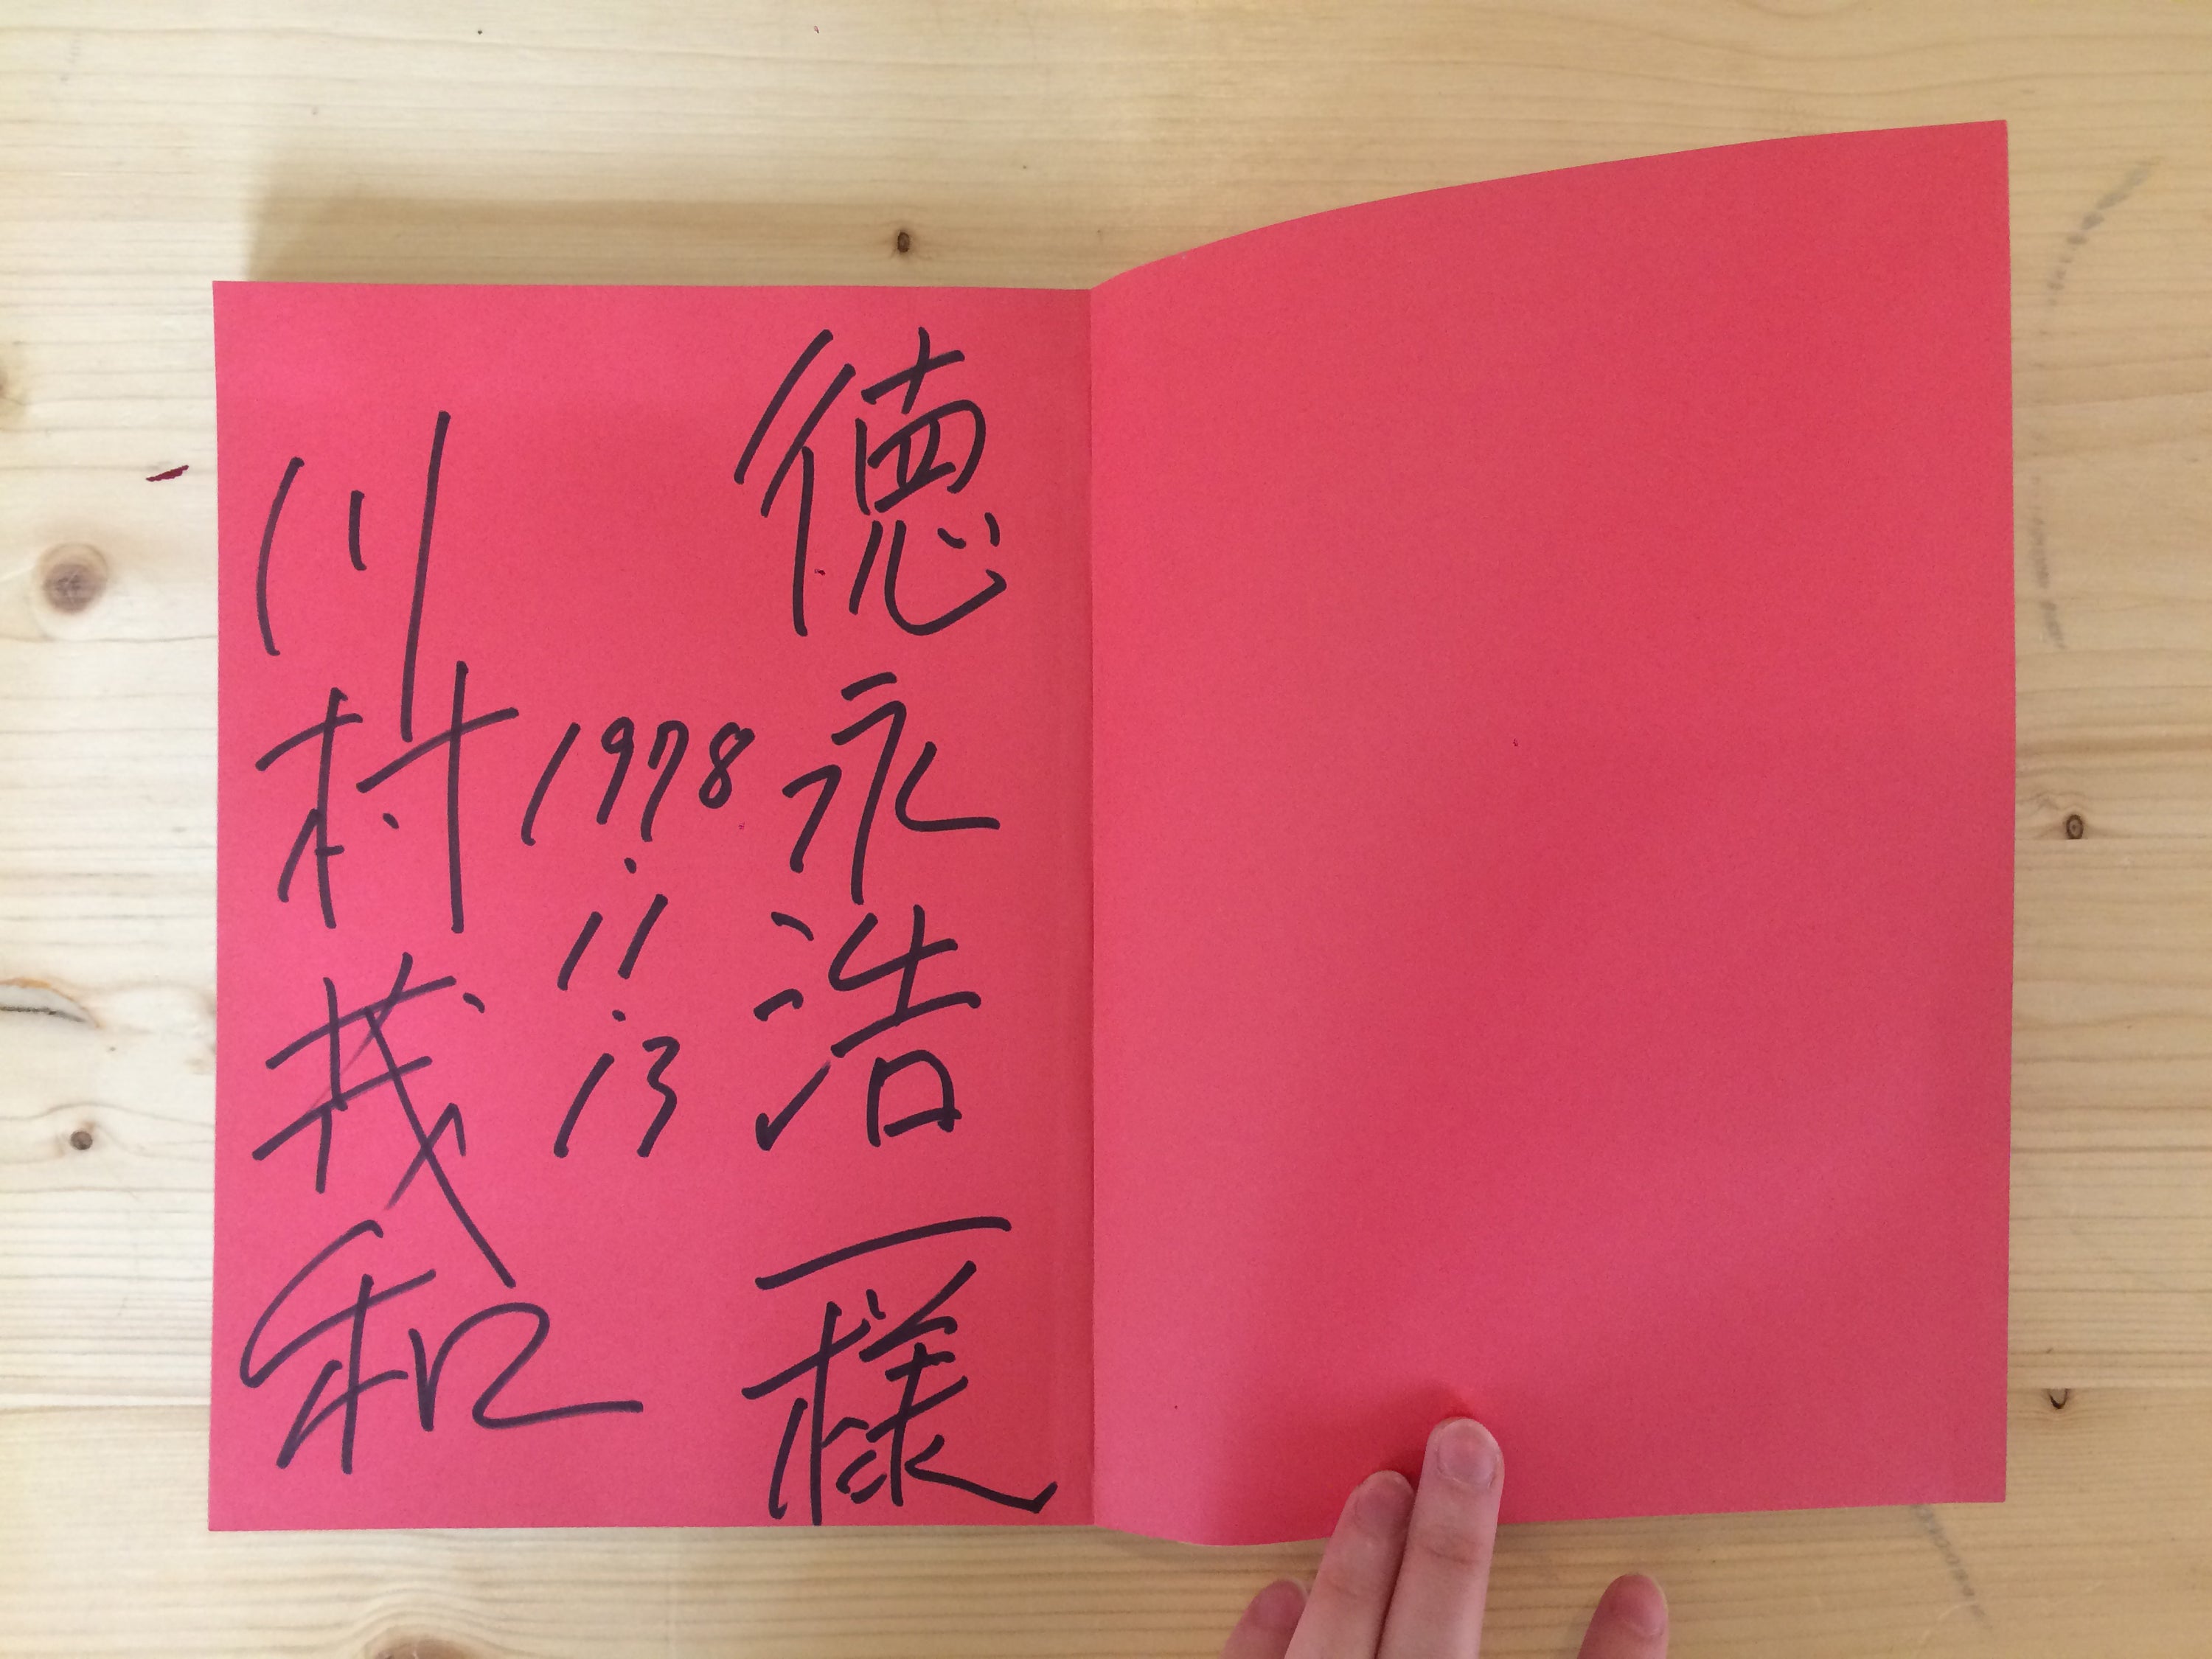 徳永浩一様
1978.11.13
川村義和